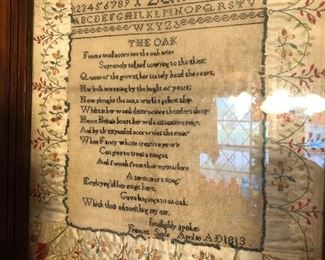 1 2 3 4 5 6 7 8 9
ABCDEFGHIJKLMNOPQRSTUV
WXYZ&
THE OAK
From a small acorn see the oak arise
Supremely tall and towring to the skies:
Queen of the groves, her stately head she rears,
Her bulk increasing by the lenght of years;
Now ploughs the sea, a warlike gallant ship,
Whilst in her womb destructive thunders sleep:
Hence Britain boast her wide extensive reign
And by th' expanded acorn rules the main
When Fancy whose creative pow'r
Can give to trees a tongue
And furnish from their
A sermon or song
Employing all her magic here,
Gave language to an oak:
Which thus admonishing my ear,
Intelligibly spoke:
Frances April A.D 1813